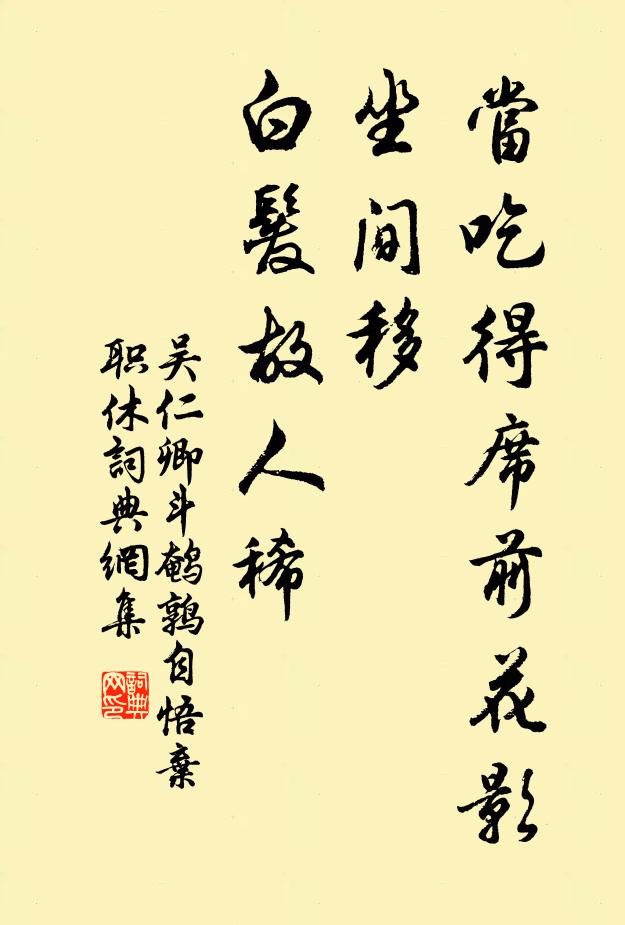 當吃得席前花影
坐間移
白髮故人稀
吴仁卿斗鹌鹑自悟棄
职休詞典網集
詞典网印